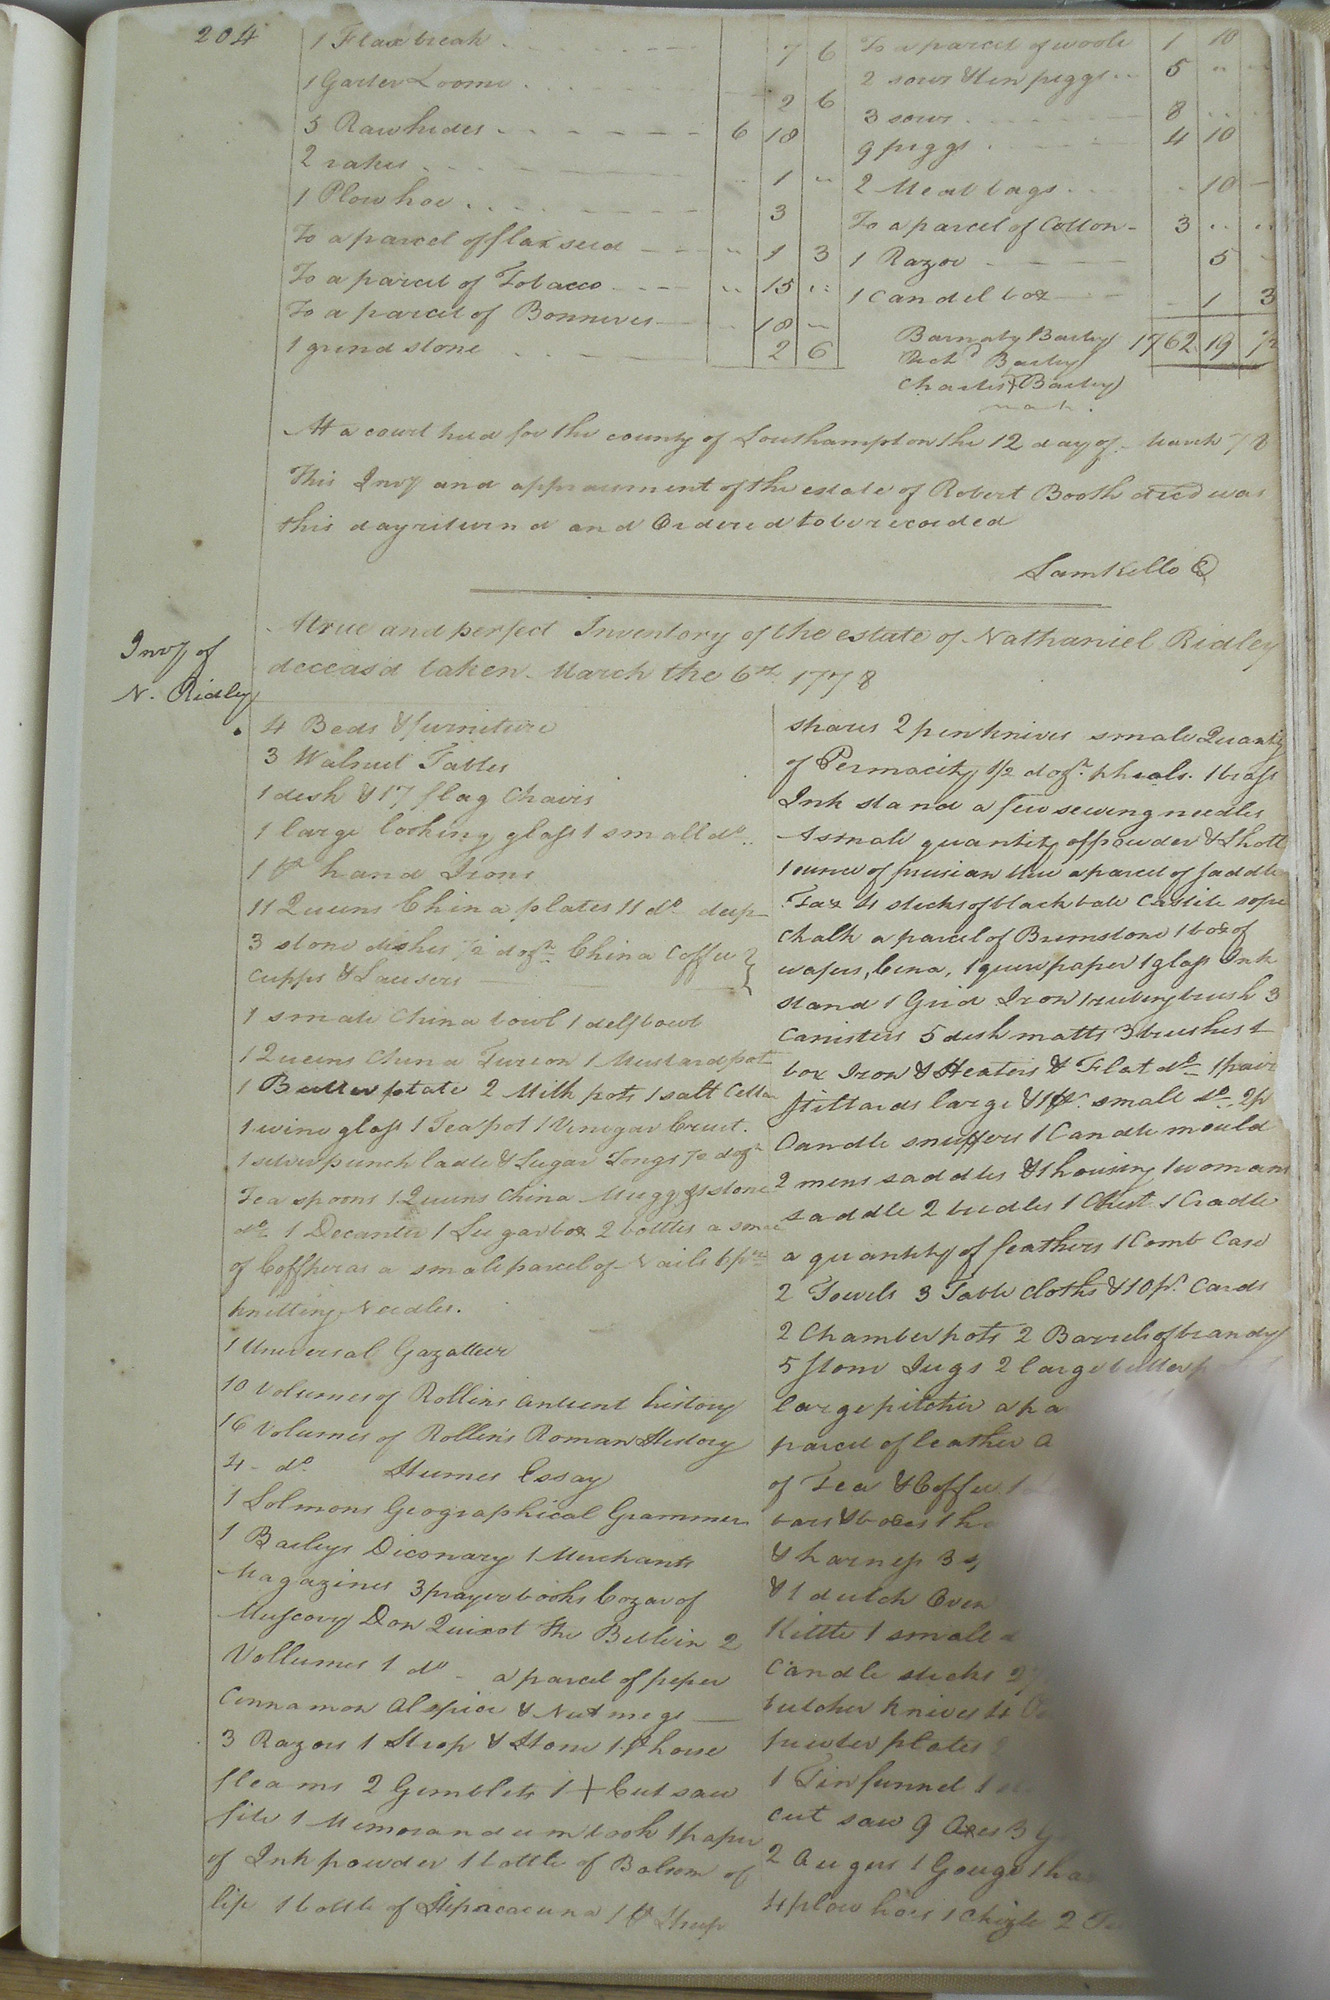 204
1 Flax break 7 6
1 Garter Loome 2 6
5 Rawhides 6 18
2 rakes 1 "
1 Plow hoe 3
To a parcel of flax seed " 1 3
To a parcel of Tobacco " 15 "
To a parcel of Bonnives " 18 "
1 grind stone 2 6
To a parcel of woole 1 10
2 sows & ten piggs 5 "
3 sows 8
9 piggs 4 10
2 Meal bags 10
To a parcel of Cotton 3 " "
1 Razor 5
1 Candel box 1 3
Barnaby Bailey 1762 19
Richd Bailey
Charles Bailey
mark.
At a court held for the county of Southampton the 12 day of March 78
This Invy and appraisment of the estate of Robert Booth decd was
this day returnd and Ordered to be recorded
Sam Kello
Invy of
N. Ridley
A true and perfect Inventory of the estate of Nathaniel Ridley
deceasd taken March the 6th 1778
4 Beds & furniture
3 Walnut Tables
1 desk & 17 flag Chairs
1 large looking glass 1 small do
1 pr hand Irons
11 Queens China plates 11 do deep
3 stone dishes 1/2 dozn China Coffee
cupps & Sausers
1 small China bowl 1 delf bowl
1 Queens China Tureen 1 Mustard pot
1 Butter plate 2 Milk pots 1 salt Cellar
1 wine glass 1 Tea pot 1 Vinegar Cruit.
1 silver punch ladle & Sugar Tongs 1/2 dozn
Tea spoons 1 Queens China Mugg & 1 stone
do 1 Decanter 1 Sugar box 2 bottles a small
of Copperas a small parcel of Nails 6 prs
knitting Needles.
1 Universal Gazatteer
10 Volumes of Rollins antient history
16 Volumes of Rollin's Roman History
4 do Humes Essay
1 Solmons Geographical Grammer
1 Baileys Diconary 1 Merchants
Magazines 3 prayer books Cozar of
Muscovy Don Quixot the Belle in 2
Vollumes 1 do a parcel of peper
Cinnamon Alspice & Nutmegs
3 Razors 1 Strop & Stone 1 pr horse
fleams 2 Gimblets 1 + Cut saw
file 1 Memorandum book 1 paper
of Ink powder 1 bottle of Balsom of
life 1 bottle of Hipacacuna 1 pr Sheep
shares 2 penknives small Quantity
of Permacity 1/2 dozn pheals. 1 brass
Ink stand a few sewing needles
A small quantity of powder & Shott
1 ounce of prusian blue a parcel of saddle
Tax 4 sticks of black ball Castile sope
chalk a parcel of Brimstone 1 box of
wafers, Cena, 1 quire paper 1 glass Ink
stand 1 Grid Iron 1 brush 3
Canisters 5 dish matts 3 brushes 1
box Iron & Heaters & Flat do 1 pair
stillards large & 1 pr. small do 2 p
Candle snuffers 1 Candle mould
2 mens saddles & 1 housing 1 womans
saddle 2 bridles 1 Chest 1 Cradle
a quantity of feathers 1 Comb Case
2 Towels 3 Table cloths & 10 pr. Cards
2 Chamber pots 2 Barrels of brandy
5 stone Jugs 2 large butter p
large pitcher a pa
parcel of leather a
of Tea & Coffee 1
bars & boxes 1 h
& harness 3
& 1 dutch Oven
Kittle 1 small
Candle sticks 2
butcher knives 4
pewter plates
1 Tin funnel 1
cut saw 9 Axes 3 G
2 Augers 1 Gouge 1 ha
4 plow hoes 1 chizle 2